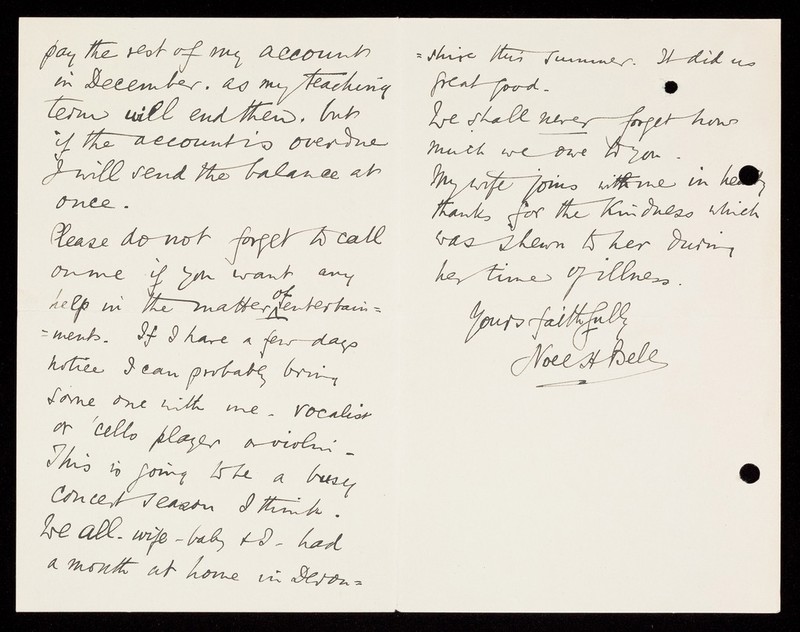 pay the rest of my account
in December. as my teaching
term will end then. but
if the account is overdue
I will send the balance at
once.
Please do not forget to call
on me if you want any
help in the matter of entertain=
=ments. If I have a few days
notice I can probably bring
some one with me - vocalist
or 'cello player or violin -
This is going to be a busy
concert season I think.
We all - wife - baby & I - had
a month at home in Devon=
=shire this summer. It did us
great good -
We shall never forget how
much we owe to you.
My wife joins with me in hearty
thanks for the kindness which
was shewn to her during
her time of illness.
Yours faithfully
Noel H Bell